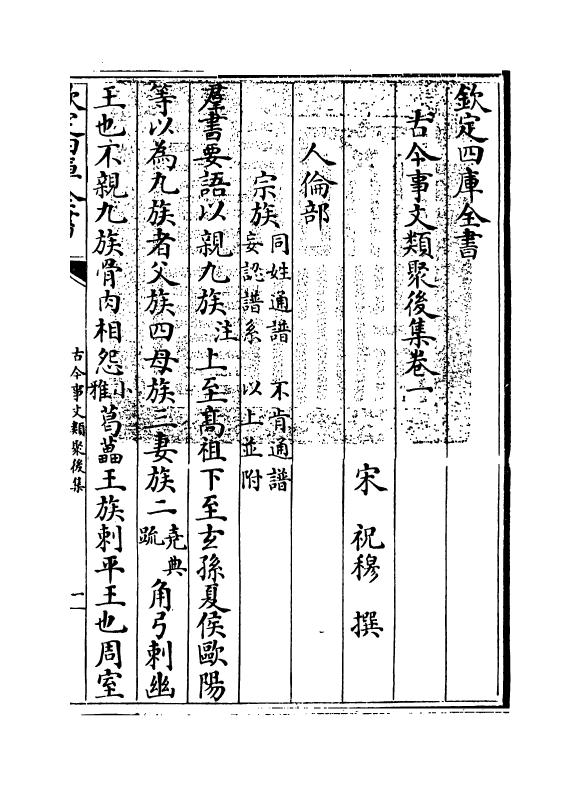 欽定四庫全書
古今事文類聚後集卷一
宋 祝穆 撰
人倫部
宗族 同姓通譜 不肯通譜 妄認譜系 以上並附
羣書要語以親九族注上至髙祖下至玄孫夏侯歐陽
等以為九族者父族四母族三妻族二堯典疏角弓刺幽
王也不親九族骨肉相怨小雅葛藟王族刺平王也周室
欽定四庫全書
古今事文類聚後集
一